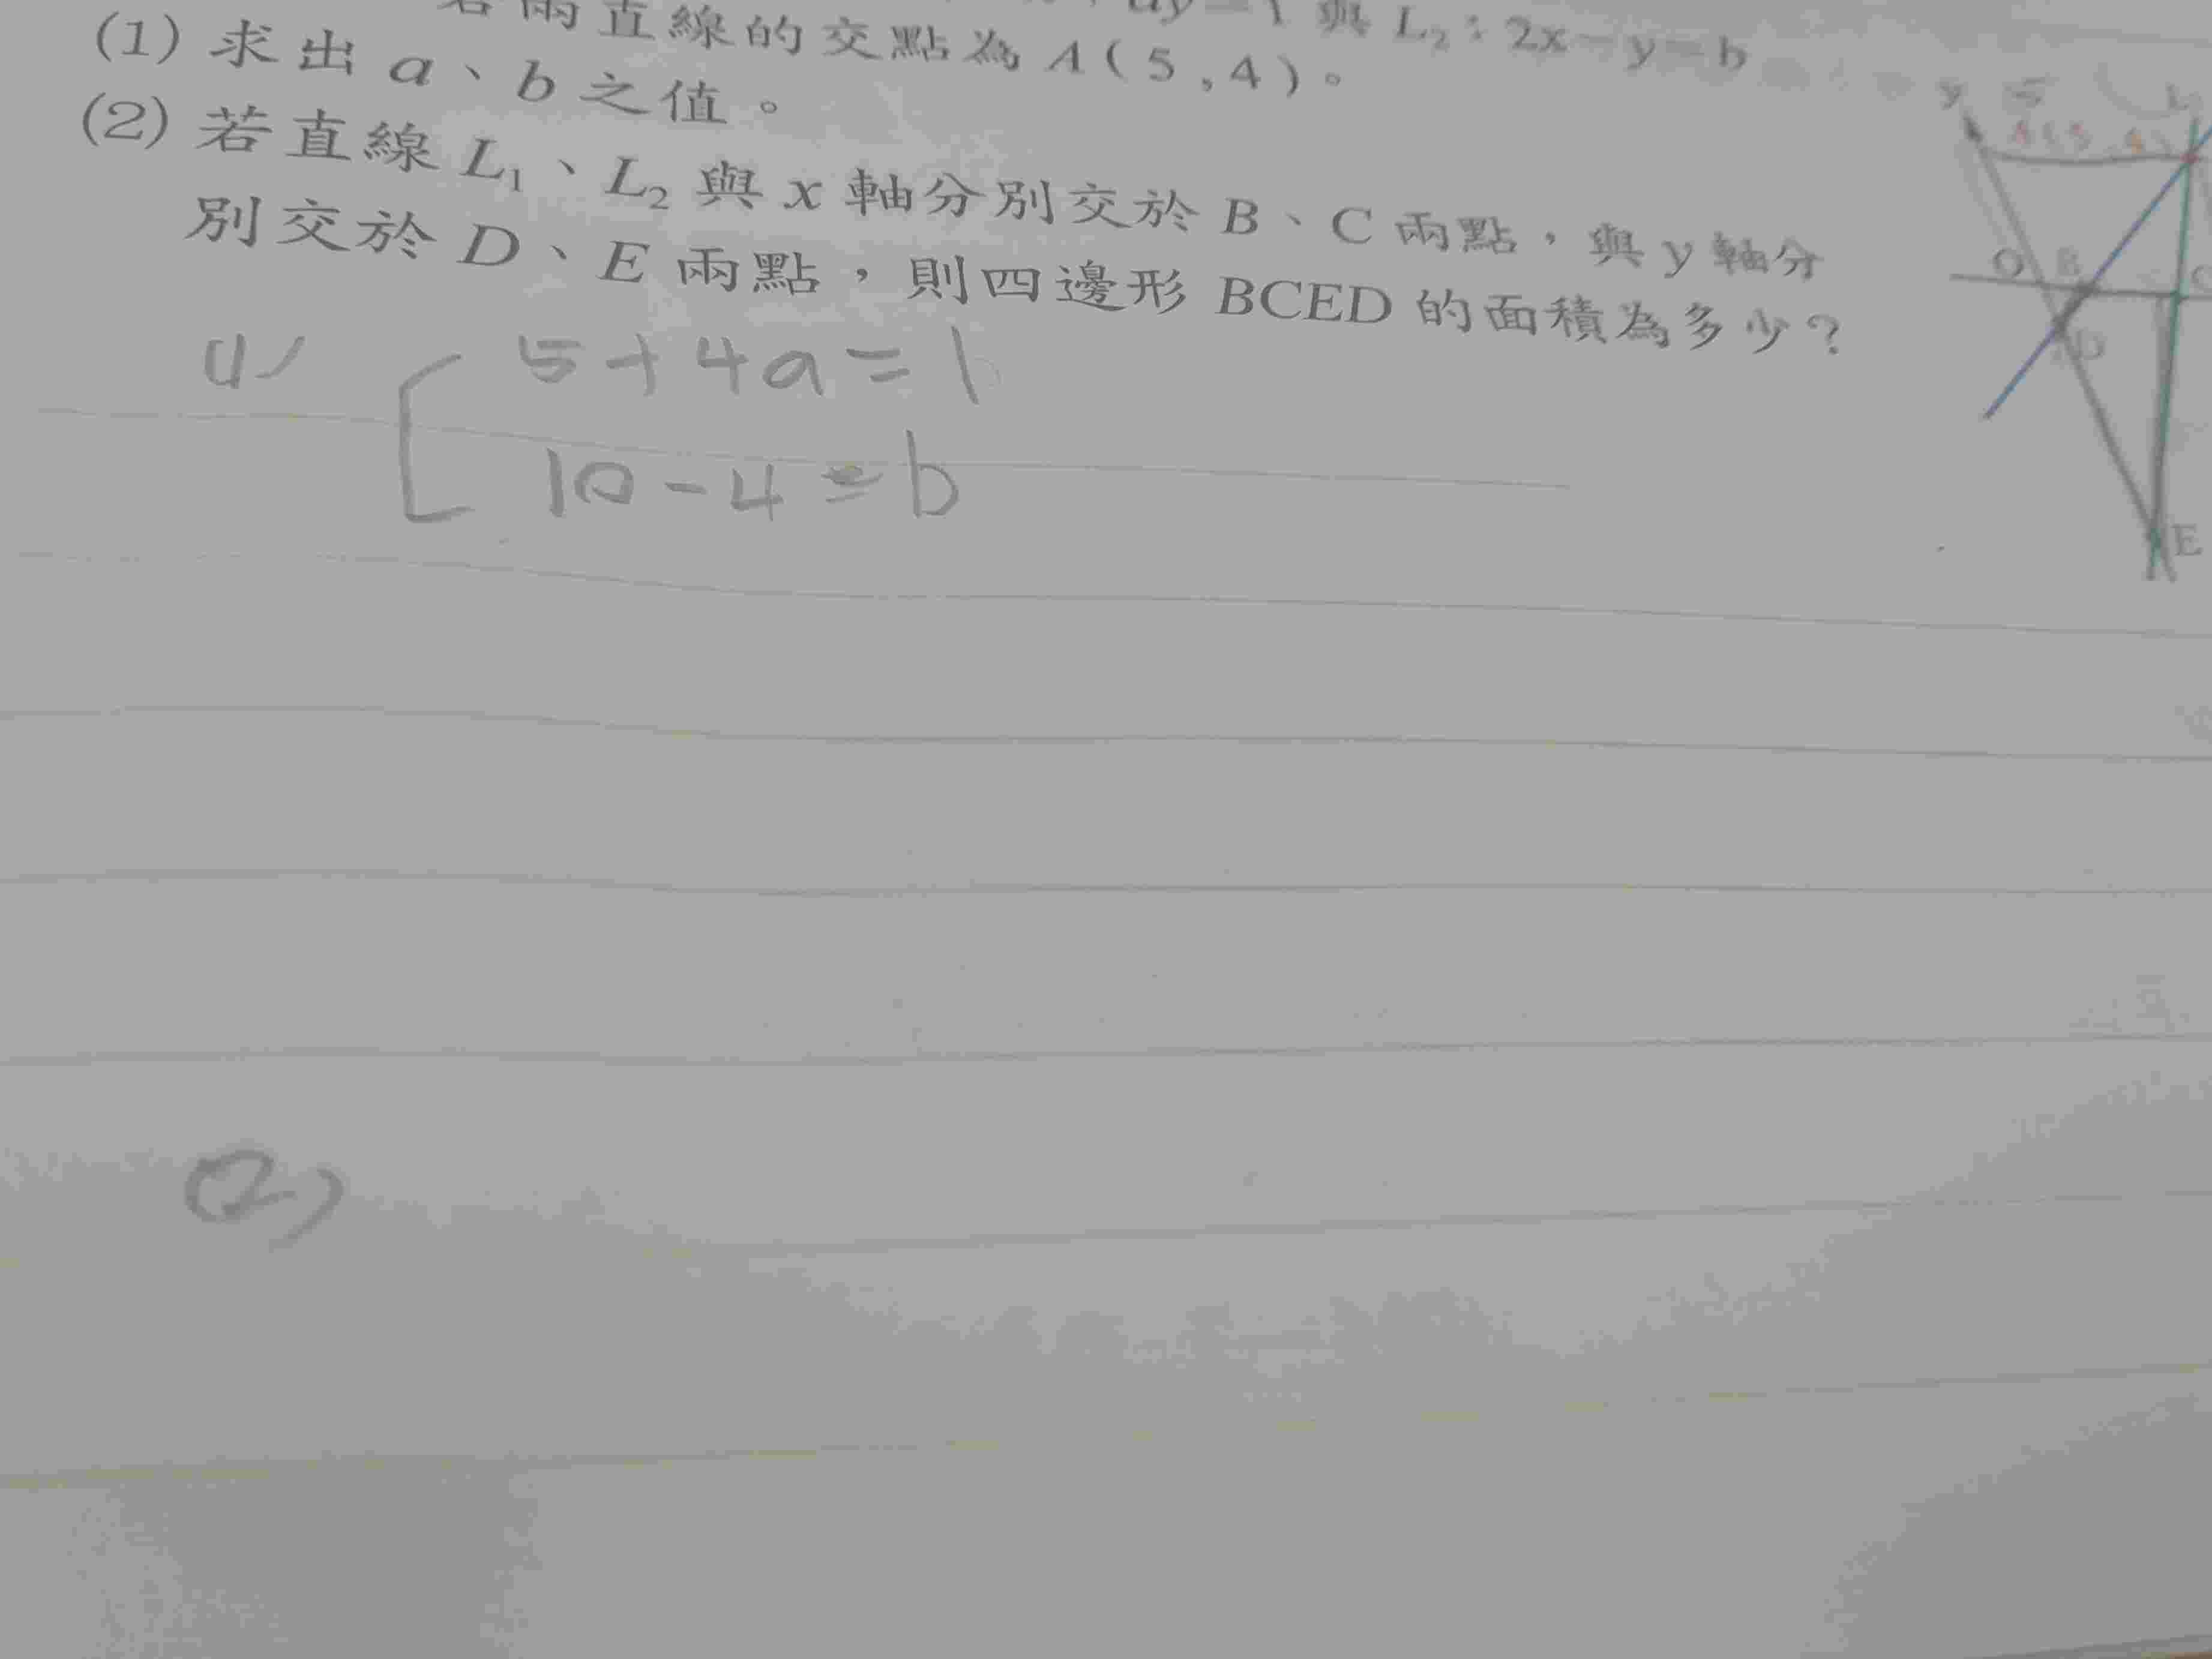 兩直線的交點為 A(5,4)。
ay=1 與 L₂:2x-y=b
(1) 求出 a、b 之值。
(2) 若直線 L₁、L₂ 與 x 軸分別交於 B、C 兩點,與 y 軸分
別交於 D、E 兩點,則四邊形 BCED 的面積為多少?
y
O B C
D
E
(1)
5+4a=1
10-4=b
(2)